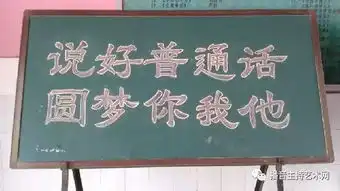 说好普通话
圆梦你我他
播音主持艺术网